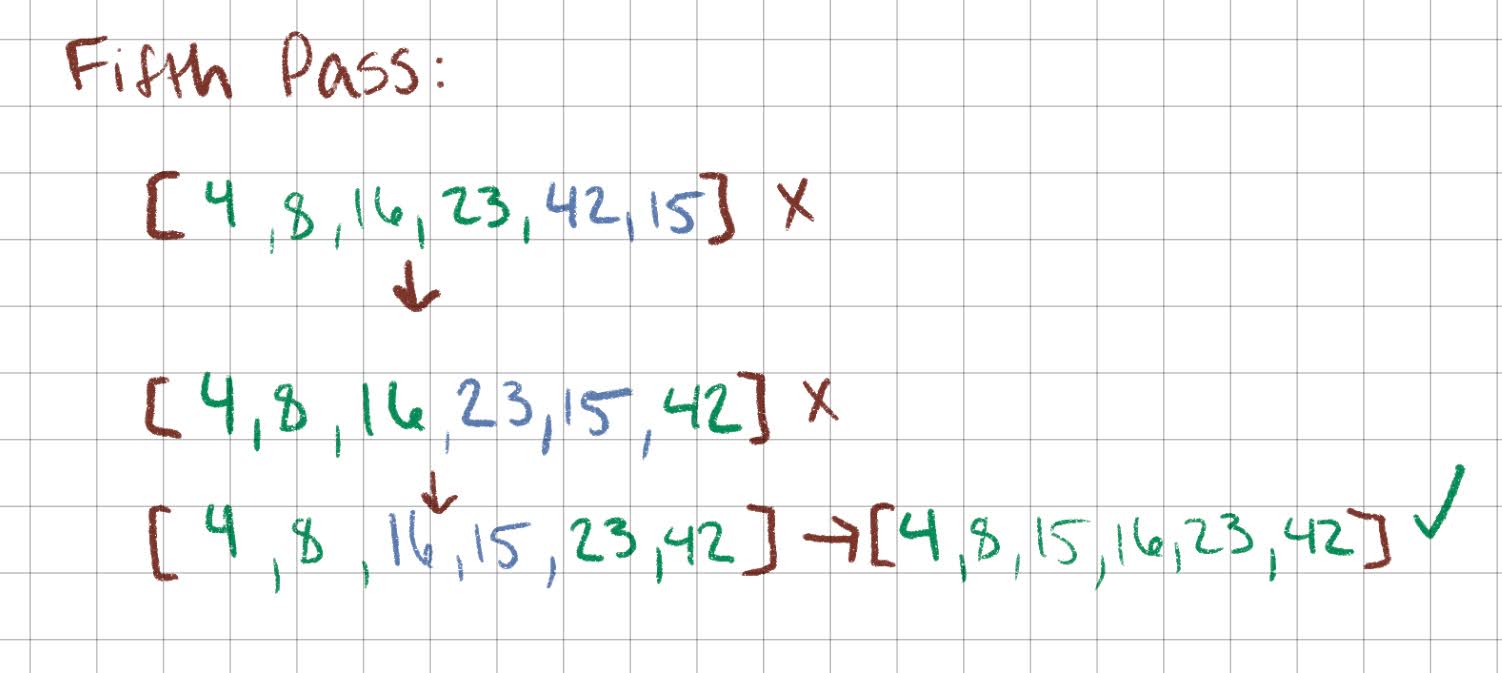 Fifth Pass:
[ 4 , 8 , 16 , 23 , 42 , 15 ] X
↓
[ 4 , 8 , 16 , 23 , 15 , 42 ] X
↓
[ 4 , 8 , 16 , 15 , 23 , 42 ] → [ 4 , 8 , 15 , 16 , 23 , 42 ] ✓